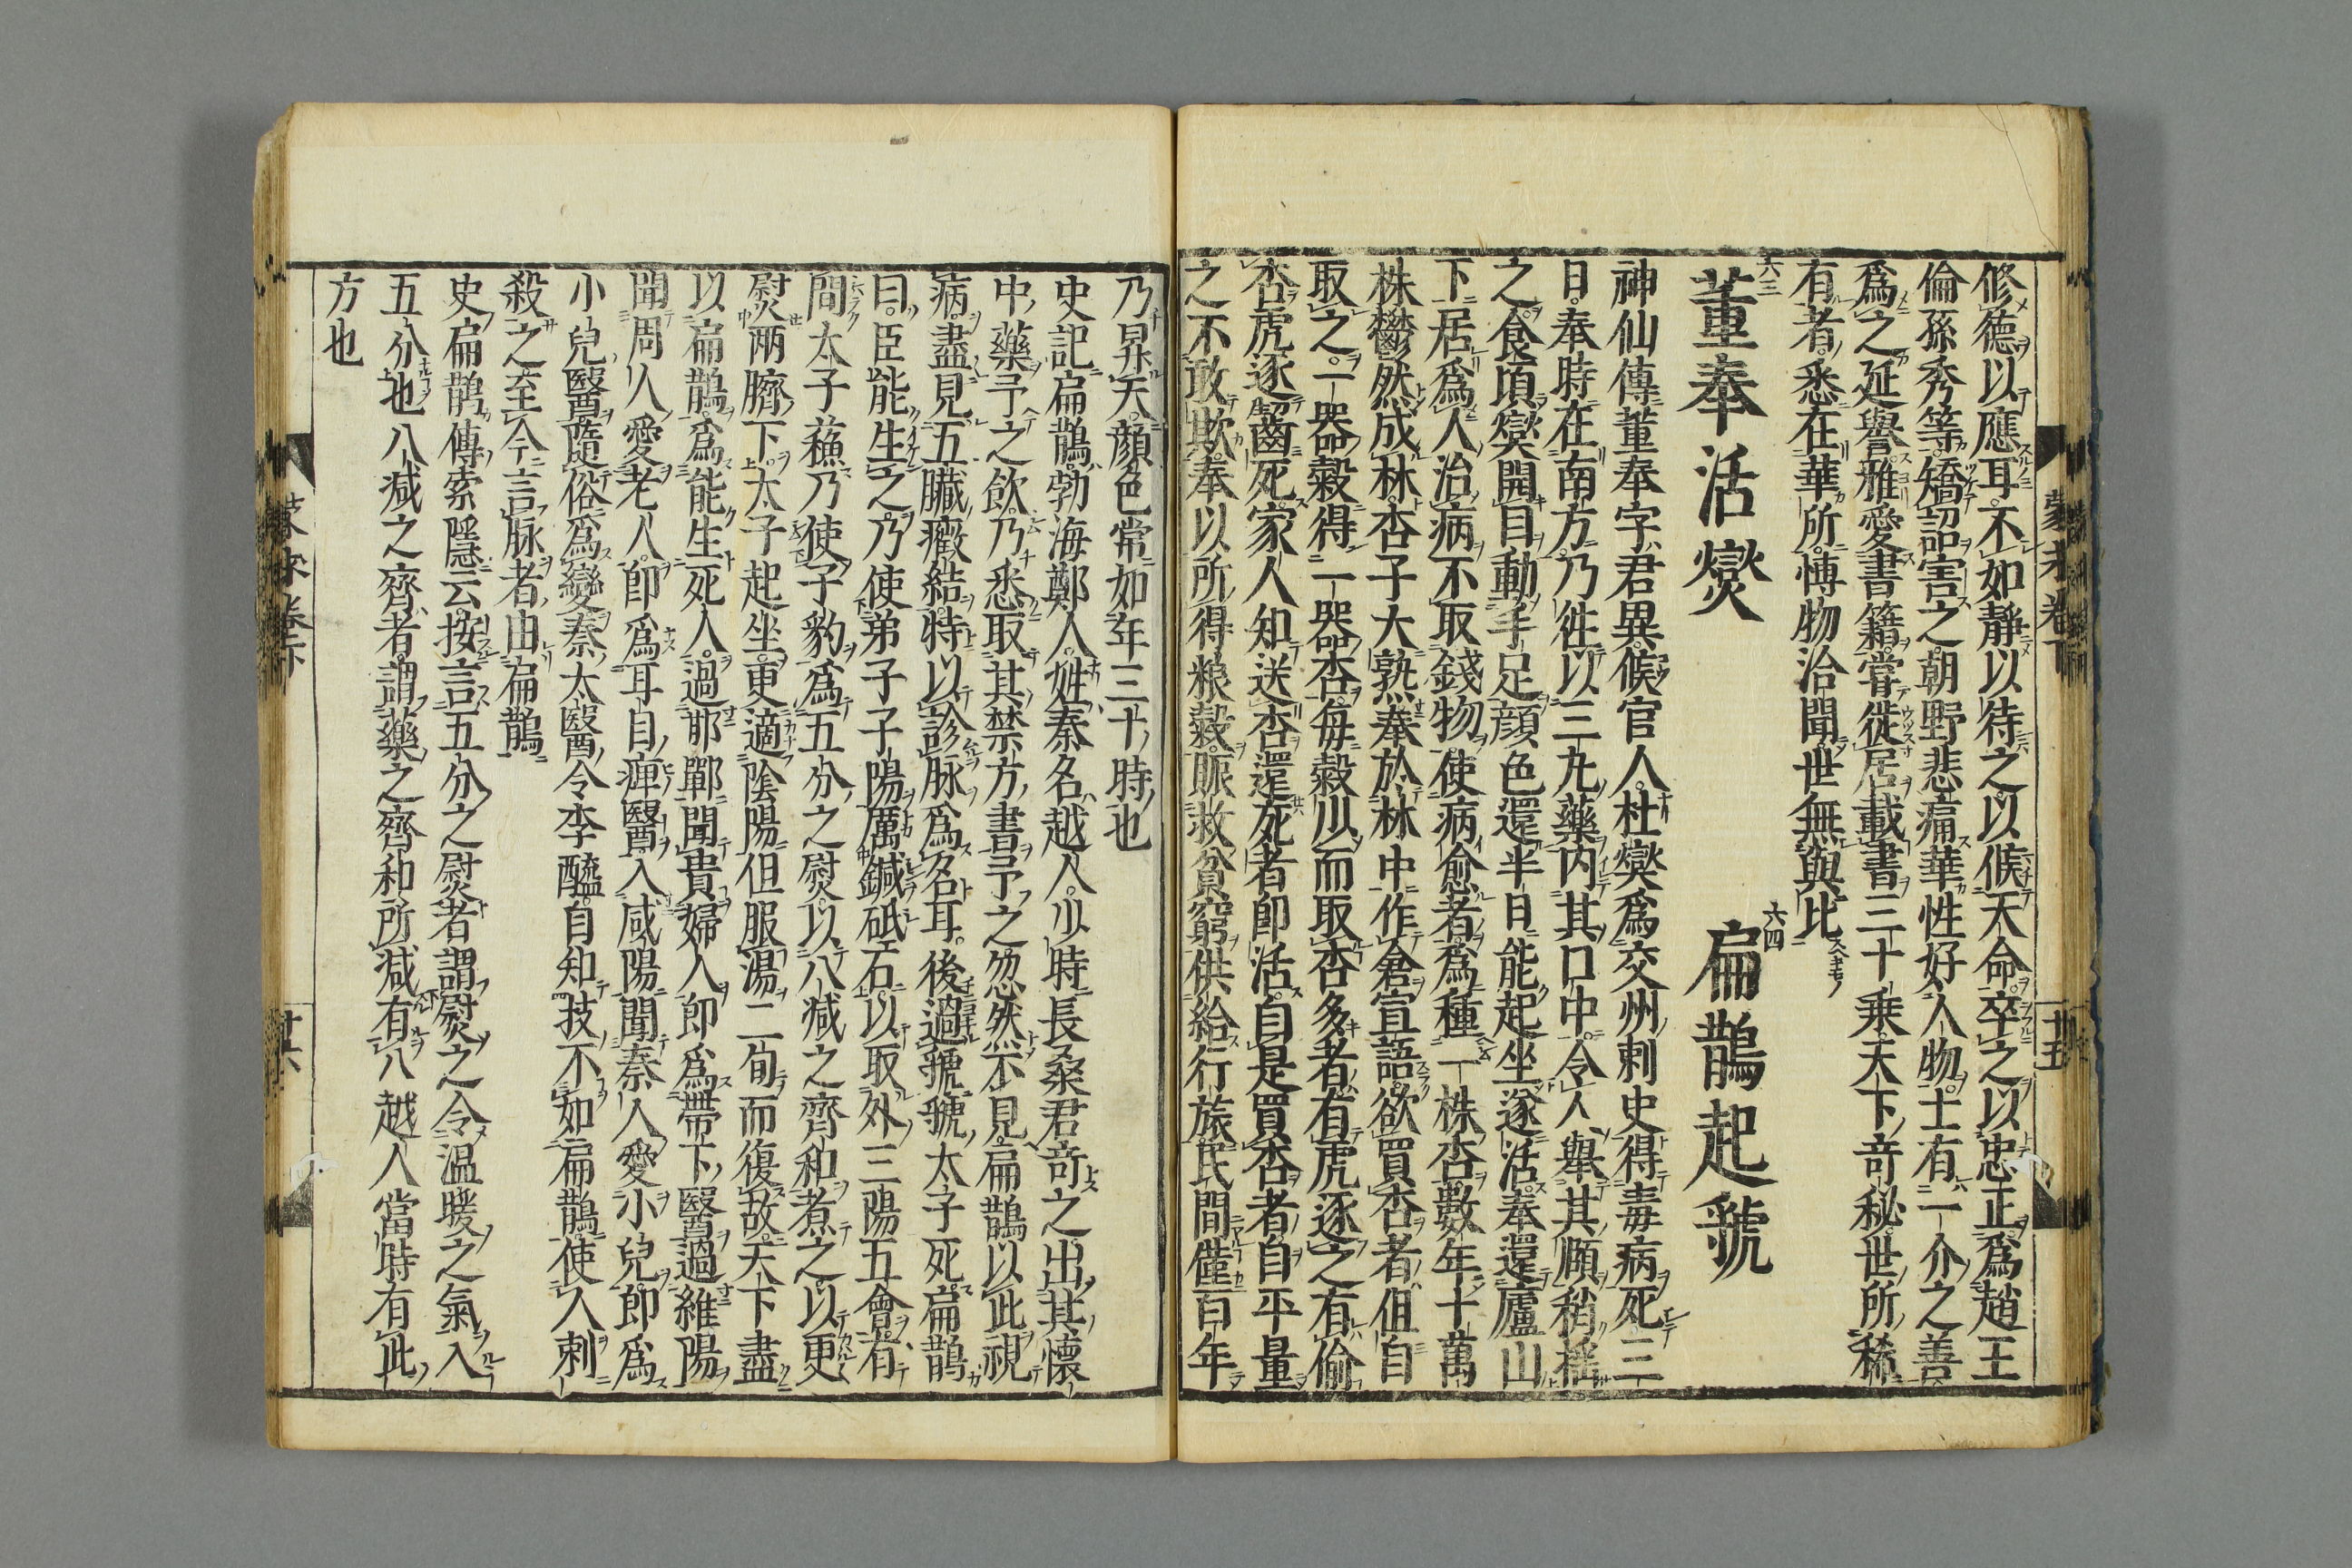 蒙求卷下
十五
修德以應耳不如靜以待之以候天命卒之以忠正爲趙王
倫孫秀等矯詔害之朝野悲痛華性好人物士有一介之善
爲之延譽雅愛書籍嘗徙居載書三十乗天下奇秘世所稀
有者悉在華所愽物洽聞世無與比
六三
董奉活燮
六四
扁鵲起虢
神仙傳董奉字君異候官人杜燮爲交州刺史得毒病死三
日奉時在南方乃徃以三丸藥内其口中令人舉其頭稍揺
之食頃燮開目動手足顔色還半日能起坐遂活奉還廬山
下居爲人治病不取錢物使病愈者爲種一株杏數年十萬
株鬱然成林杏子大熟奉於林中作倉宣語欲買杏者但自
取之一器穀得一器杏毎穀少而取杏多者有虎逐之有偷
杏虎逐齧死家人知送杏還死者即活自是買杏者自平量
之不敢欺奉以所得粮穀賑救貧窮供給行旅民間僅百年
乃昇天顔色常如年三十時也
史記扁鵲勃海鄭人姓秦名越人少時長桑君奇之出其懷
中藥予之飲乃悉取其禁方書予之忽然不見扁鵲以此視
病盡見五臓癥結特以診脉爲名耳後過虢虢太子死扁鵲
曰臣能生之乃使弟子子陽厲鍼砥石以取外三陽五會有
間太子蘓乃使子豹爲五分之熨以八减之齊和煮之以更
熨兩臍下太子起坐更適陰陽但服湯二旬而復故天下盡
以扁鵲爲能生死人過邯鄲聞貴婦人即爲帶下醫過維陽
聞周人愛老人即爲耳目痺醫入咸陽聞秦人愛小兒即爲
小兒醫隨俗爲變秦太醫令李醯自知技不如扁鵲使人刺
殺之至今言脉者由扁鵲
史扁鵲傳索隱云按言五分之熨者謂熨之令温暖之氣入
五分也八减之齊者謂藥之齊和所减有八越人當時有此
方也
蒙求卷下
十六